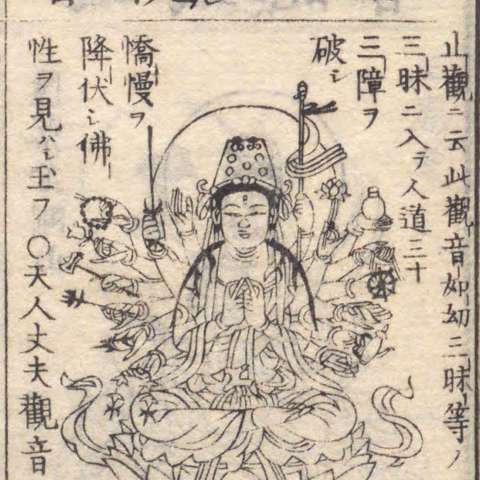 止觀ニ云此觀音如幻三昧等ノ
三昧ニ入テ人道三十
三障ヲ
破シ
憍慢ヲ
降伏シ佛
性ヲ見ハシ玉フ〇天人丈夫觀音